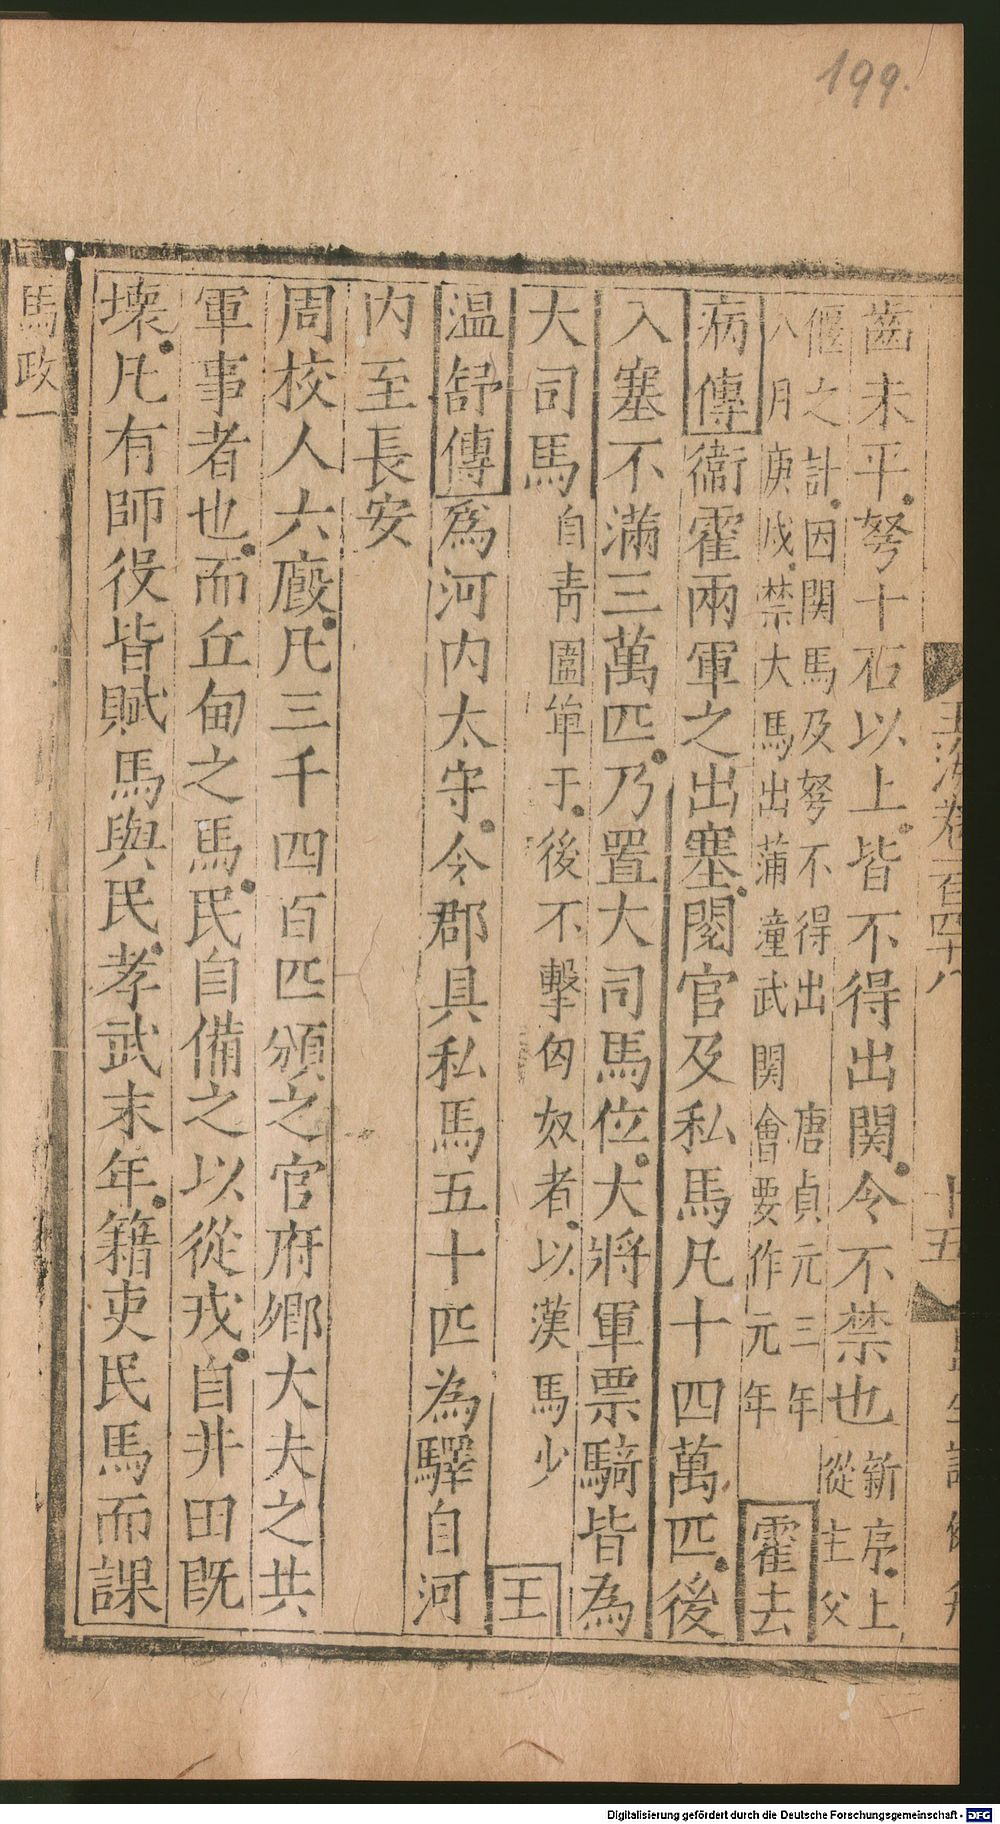 199.
玉海卷一百四十八
十五
齒未平弩十石以上皆不得出関令不禁也新序上從主父
偃之計因関馬及弩不得出 唐貞元三年
八月庚戌禁大馬出蒲潼武関會要作元年 霍去
病傳衞霍兩軍之出塞閱官及私馬凡十四萬匹後
入塞不滿三萬匹乃置大司馬位大將軍票騎皆為
大司馬自青圍單于後不擊匈奴者以漢馬少 王
温舒傳為河内太守令郡具私馬五十匹為驛自河
内至長安
周校人六廄凡三千四百匹頒之官府鄉大夫之共
軍事者也而丘甸之馬民自備之以從戎自井田既
壞凡有師役皆賦馬與民孝武末年籍吏民馬而課
馬政一
Digitalisierung gefördert durch die Deutsche Forschungsgemeinschaft - DFG